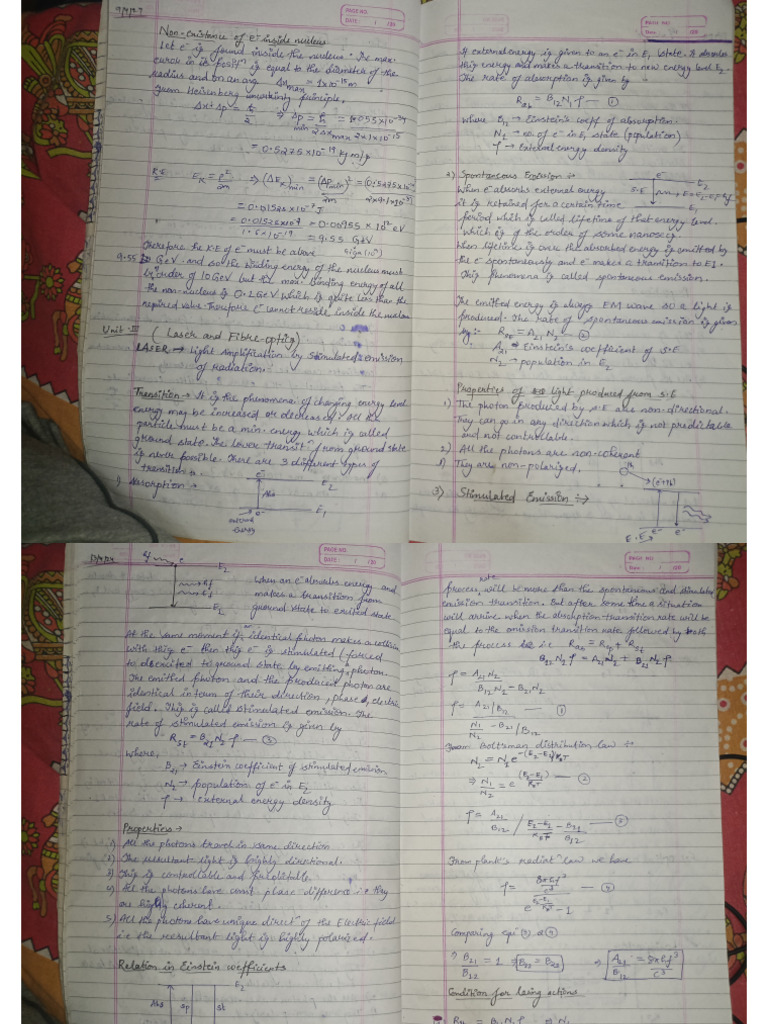 PAGE NO.
DATE: / /20
Non-existance of e⁻ inside nucleus
Let e⁻ is found inside the nucleus. The max.
error in its positⁿ is equal to the diameter of the
radius and on an avg Δx max = 1×10⁻¹⁵ m
from Heisenberg uncertainty principle,
Δx·Δp = ħ/2 ⇒ Δp min = ħ/2Δx max = 1.055×10⁻³⁴/2×1×10⁻¹⁵
= 0.5275×10⁻¹⁹ kg m/s
K.E E_K = p²/2m ⇒ (ΔE_K) min = (Δp min)²/2m = (0.5275×10
= 0.01526×10⁻⁷ J
= 0.01526×10⁻⁷/1.6×10⁻¹⁹ = 0.00955×10¹² eV
= 9.55 GeV
Therefore the K.E of e⁻ must be above
9.55 GeV. and so the binding energy of the nucleus must
be order of 10 GeV but the max. Binding energy of all
the nucleus is 0.2 GeV which is quite less than the
required value. Therefore e⁻ cannot reside inside the nucleus
Unit-III
(Laser and Fibre-optics)
LASER → Light Amplification by Stimulated Emission
of radiation.
Transition → It is the phenomena of changing energy level
energy may be increased or decreased. All the
particle must be a min. energy which is called
ground state. The lower transitⁿ from ground state
is never possible. There are 3 different types of
transition :-
1) Absorption →
E2
Abs
E1
e⁻
external
energy
PAGE NO:
Date: / /20
If external energy is given to an e⁻ in E1 state. It absorbs
this energy and makes a transition to new energy level E2.
The rate of absorption is given by
R_ab = B12 N1 ρ — ①
where B12 → Einstein's coeff of absorption.
N1 → no. of e⁻ in E1 state (population)
ρ → External energy density
2) Spontaneous Emission :-
e⁻
E2
S.E
E1
When e⁻ absorbs external energy
it is retained for a certain time
period which is called lifetime of that energy level.
which is of the order of some nanosec.
When lifetime is over the absorbed energy is emitted by
the e⁻ spontaneously and e⁻ makes a transition to E1.
This phenomena is called spontaneous emission.
The emitted energy is always EM wave so a light is
produced. The rate of spontaneous emission is given
by:- R_sp = A21 N2 — ②
A21 → Einstein's coefficient of S.E
N2 → population in E2
Properties of light produced from S.E
1) The photon produced by S.E are non-directional.
They can go in any direction which is not predictable
and not controllable.
2) All the photons are non-coherent
3) They are non-polarized.
3) Stimulated Emission :→
E.E
e⁻
e⁻
PAGE NO.
DATE: / /20
E2
hf
E1
When an e⁻ absorbs energy and
makes a transition from
ground state to exited state
At the same moment if identical photon makes a collision
with this e⁻ then this e⁻ is stimulated (forced
to de-exited to ground state by emitting photon.
The emitted photon and the producent photon are
identical in term of their direction, phase, electric
field. This is called stimulated emission. The
rate of stimulated emission is given by
R_st = B21 N2 ρ — ③
where,
B21 → Einstein coefficient of stimulated emission
N2 → population of e⁻ in E2
ρ → external energy density
Properties →
1) All the photons travel in same direction
2) The resultant light is highly directional.
3) This is controllable and predictable.
4) All the photons have const phase difference i.e. they
are highly coherent.
5) All the photons have unique directⁿ of the Electric field
i.e the resultant light is highly polarized.
Relation in Einstein coefficients
E2
Abs
Sp
St
PAGE NO:
Date: / /20
rate
process will be more than the spontaneous and stimulated
emission transition. But after some time a situation
will arrive when the absorption transition rate will be
equal to the emission transition rate followed by both
the process i.e R_ab = R_sp + R_st
B12 N1 ρ = A21 N2 + B21 N2 ρ
ρ = A21 N2 / B12 N1 − B21 N2
ρ = A21/B12 / N1/N2 − B21/B12 — ①
From Boltzman distribution law :-
N2 = N1 e^−(E2−E1)/K_BT
⇒ N1/N2 = e^(E2−E1)/K_BT — ②
ρ = A21/B12 / e^(E2−E1)/K_BT − B21/B12 — ③
From plank's radiatⁿ law we have
ρ = 8πhf³/c³ / e^(E2−E1)/K_BT − 1 — ④
Comparing eqⁿ ③ & ④
⇒ B21/B12 = 1 ⇒ B12 = B21 ⇒ A21/B12 = 8πhf³/c³
Condition for lasing actions